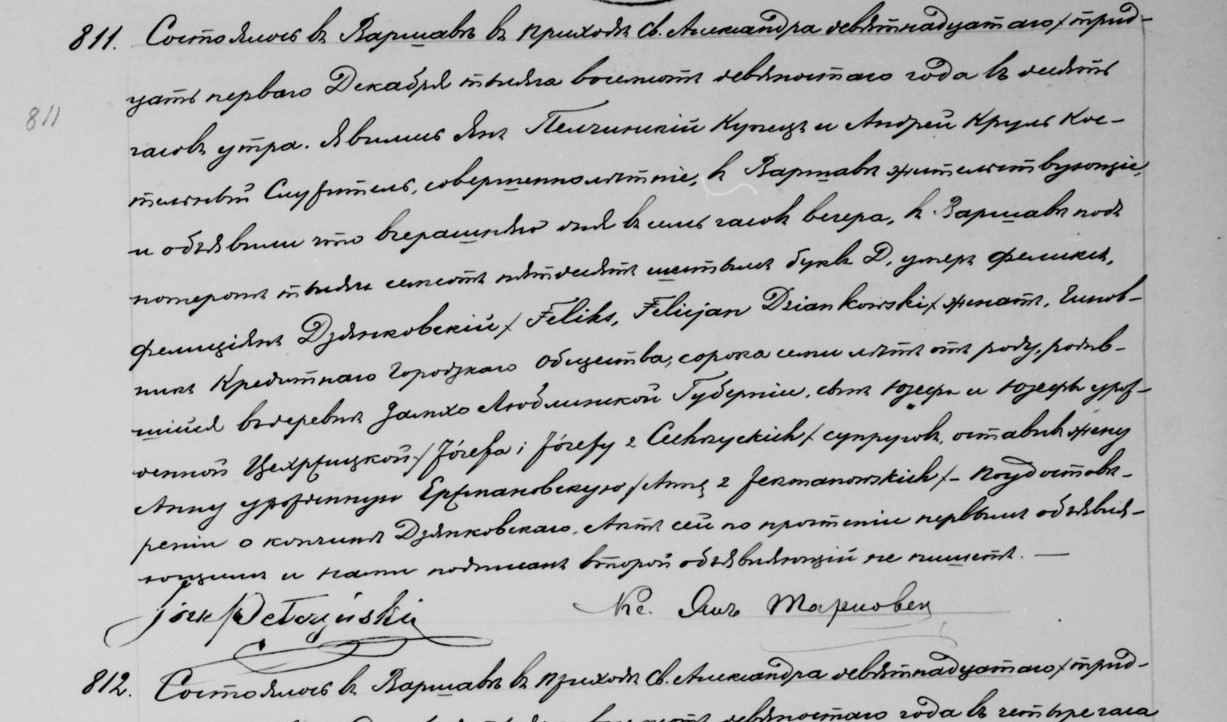 811. Состоялось въ Варшавѣ въ приходѣ Св. Александра девятнадцатаго / трид-
811
цать перваго Декабря тысяча восемсотъ девяностаго года въ десять
часовъ утра. Явились Янъ Пелчинскій Купецъ и Андрей Круль Кос-
тельный Служитель, совершеннолѣтніе, въ Варшавѣ жительствующіе,
и объявили что вчерашняго дня въ семь часовъ вечера, въ Варшавѣ подъ
номеромъ тысяча семсотъ пятьдесятъ шестымъ букв. D, умеръ Феликсъ,
Фелиціянъ Дзянковскій / Feliks, Felicjan Dziankowski / женатъ, Чинов-
никъ Кредитнаго Городскаго Общества, сорока семи лѣтъ отъ роду, родив-
шійся въ деревнѣ Люблинской Губерніи, сынъ Юзефа и Юзефы урож-
денной Цехржицкой / Józefa i Józefy z Cechrzyckich / супруговъ, оставивъ жену
Анну урожденную Ержмановскую / Annę z Jerzmanowskich / – По удостовѣ-
реніи о кончинѣ Дзянковскаго. Актъ сей по прочтеніи первымъ объявля-
ющимъ и нами подписанъ второй объявляющій не пишетъ. —
Кс. Янъ
812. Состоялось въ Варшавѣ въ приходѣ Св. Александра девятнадцатаго / трид-
девяностаго года въ четыре часа